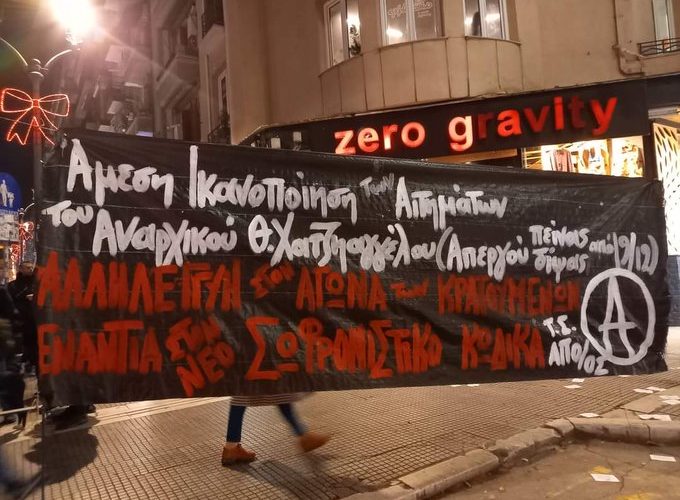 zero gravity
Άμεση Ικανοποίηση των Αιτημάτων
του Αναρχικού Θ. Χατζηαγγέλου (Απεργού πείνας δίψας από 19/12)
ΑΛΛΗΛΕΓΓΥΗ στον ΑΓΩΝΑ των ΚΡΑΤΟΥΜΕΝΩΝ
ΕΝΑΝΤΙΑ ΣΤΟΝ ΝΕΟ ΣΩΦΡΟΝΙΣΤΙΚΟ ΚΩΔΙΚΑ
Τ.Σ. ΑΠΟ/ΟΣ
A